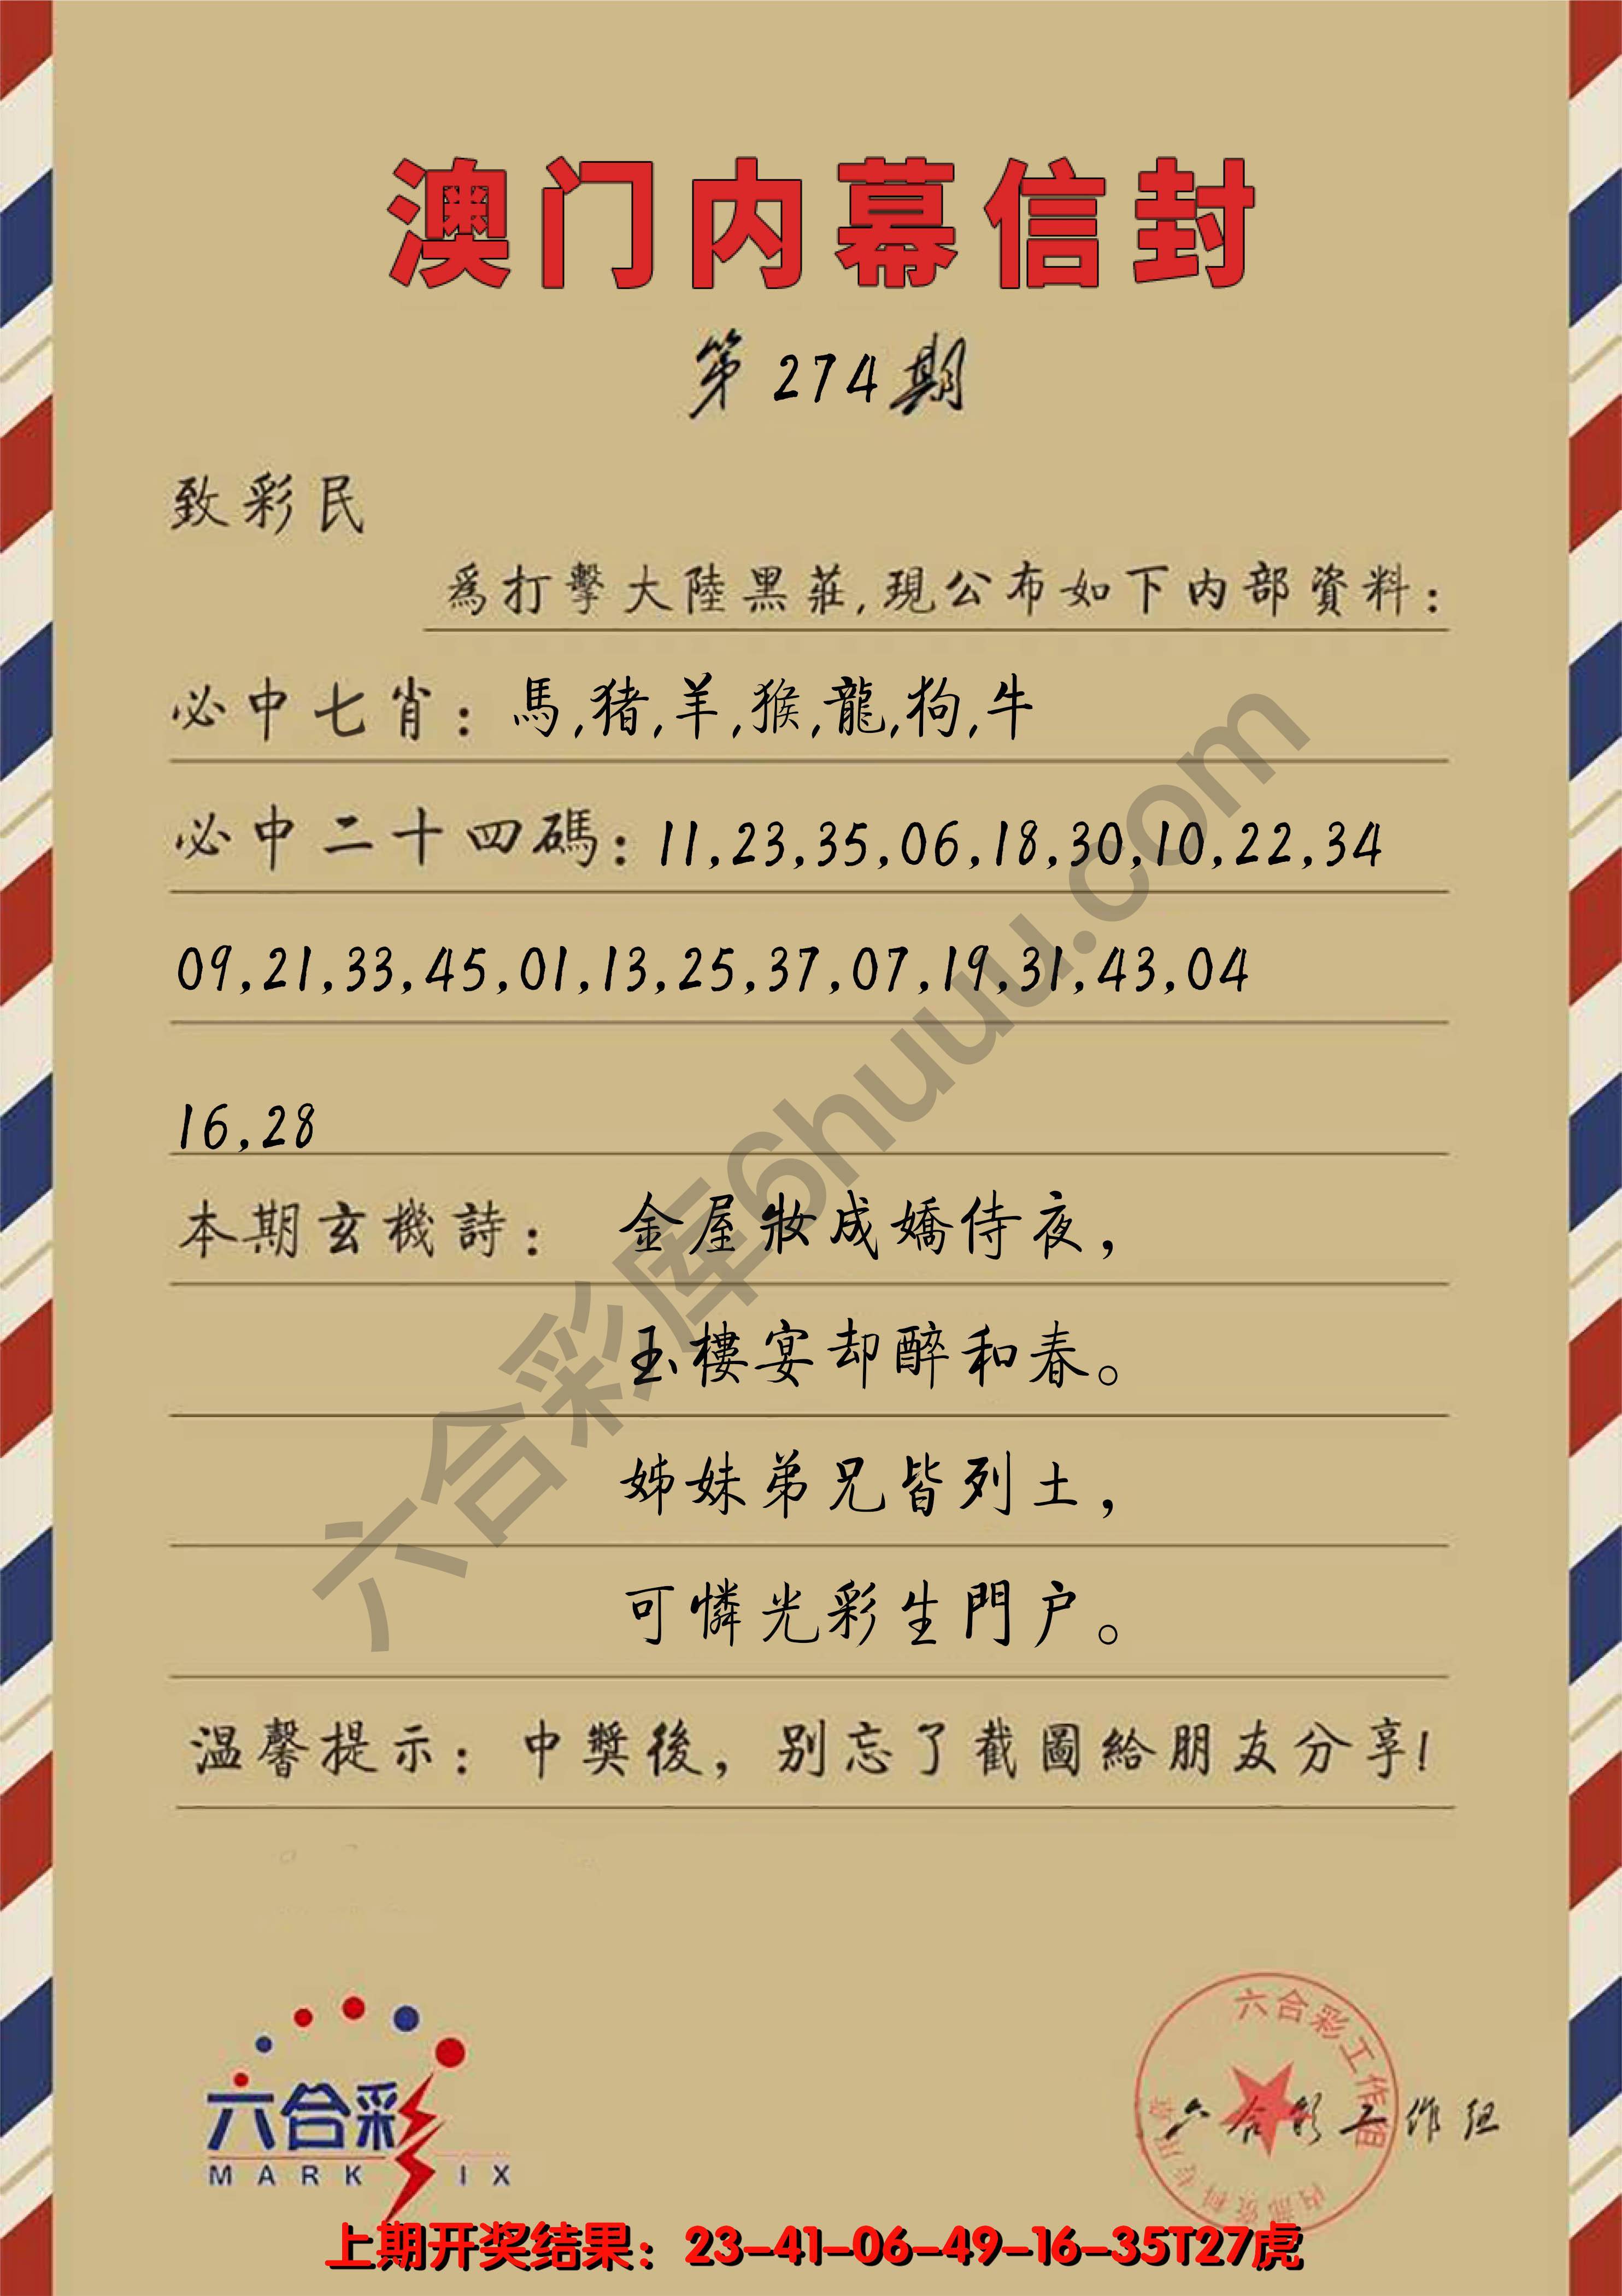 澳门内幕信封
第274期
致彩民
爲打擊大陸黑莊,現公布如下内部資料:
必中七肖: 馬,猪,羊,猴,龍,狗,牛
必中二十四碼: 11,23,35,06,18,30,10,22,34
09,21,33,45,01,13,25,37,07,19,31,43,04
16,28
本期玄機詩: 金屋妝成嬌侍夜,
玉樓宴却醉和春。
姊妹弟兄皆列土,
可憐光彩生門户。
温馨提示: 中獎後, 别忘了截圖給朋友分享!
六合彩库6huuu.com
六合彩
MARK IX
六合彩工作组
内部资料专用章
六合彩工作组
上期开奖结果: 23-41-06-49-16-35T27虎